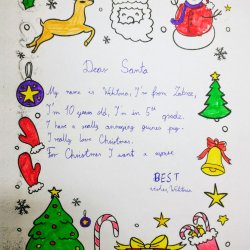 Dear Santa
My name is Wiktoria, I'm from Zabrze,
I'm 10 years old, I'm in 5th grade.
I have a really annoying guinea pig.
I really love Christmas.
For Christmas I want a
BEST
wishes, Wiktoria